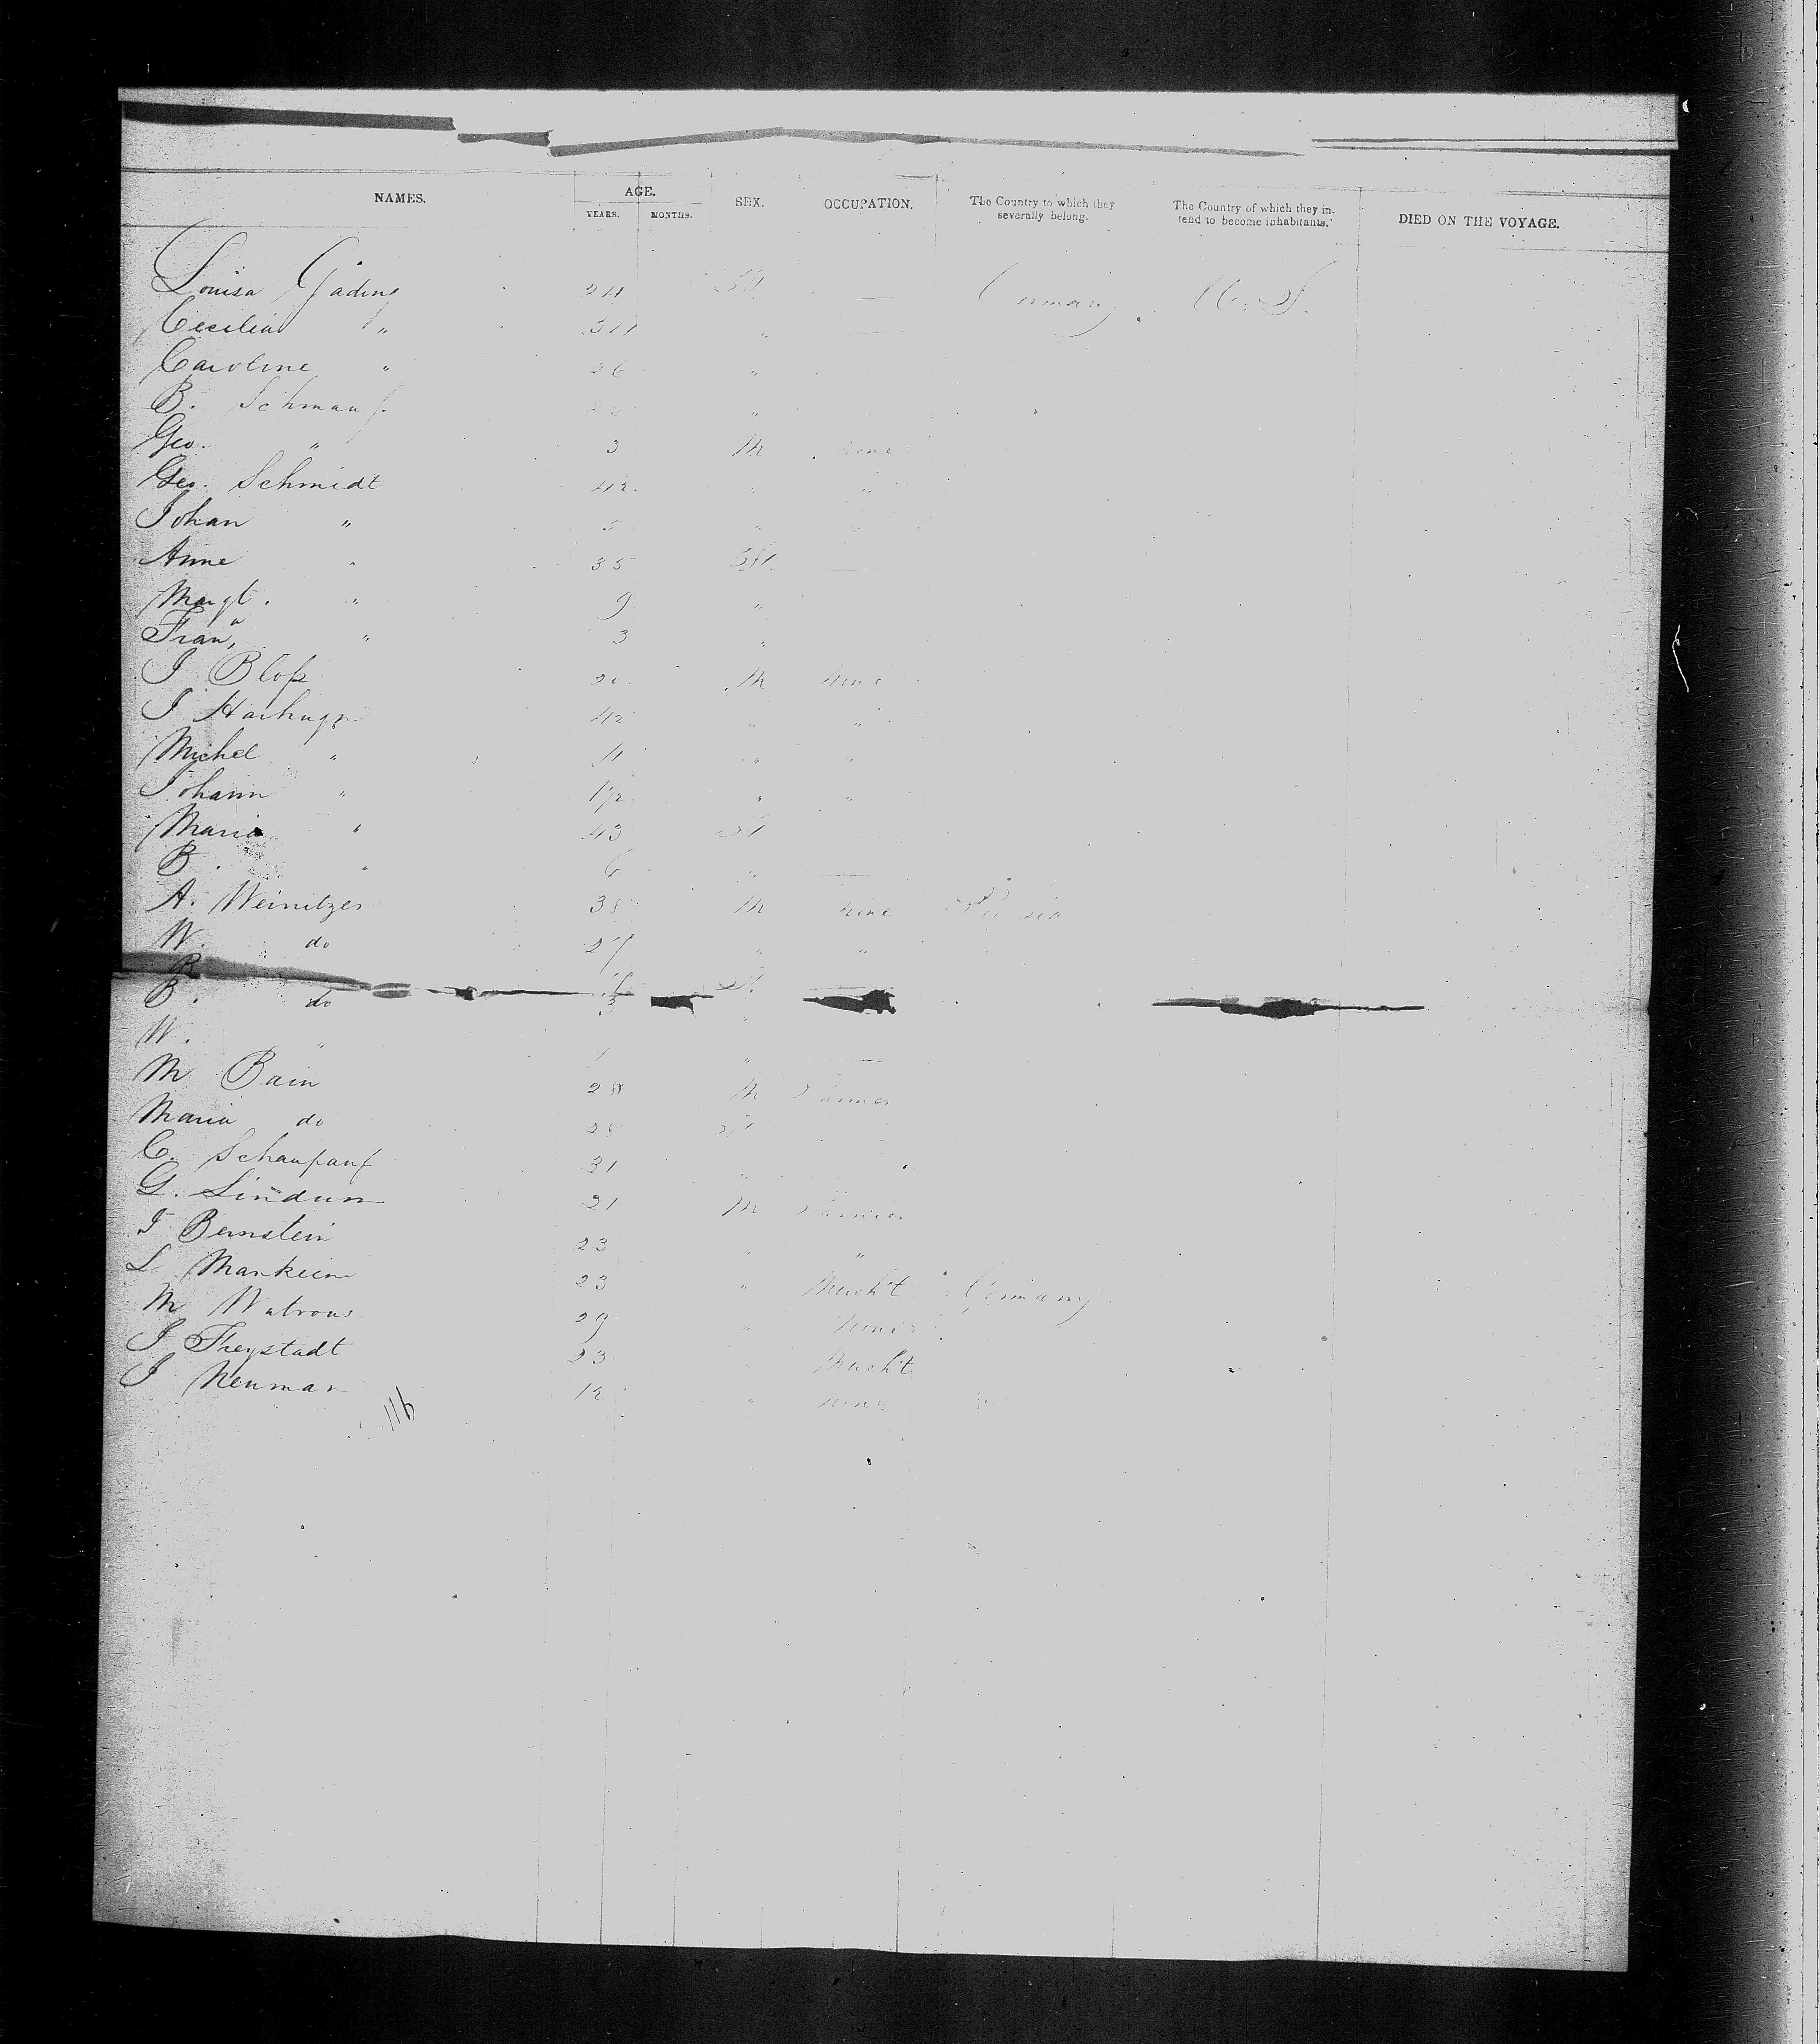 NAMES. AGE. SEX. OCCUPATION. The Country to which they severally belong. The Country of which they intend to become inhabitants. DIED ON THE VOYAGE.
YEARS. MONTHS.
Louisa Gading 24 — Germany U. S.
Cecilia " "
Caroline " 26 "
B. Schmauf 26 "
Geo. " 3 M none
Geo. Schmidt 42 " "
Johan " 5 "
Anne " 35
Margt. " 9 "
Fran, " 3 "
J Bloß M none
J 42 " "
Michel " " "
Johann " 1 1/2 " "
Maria " 43
B. " 6 "
A. Weinitzer 38 M none
W. do 27 " "
B. do
W. "
M Bain 28 M Farmer
Maria do 28
C. Schaupauf 31 "
G. Lindum 31 M Farmer
J Bernstein 23 " "
L Mankeim 23 " Mercht Germany
M Watrous 29 " none
J Freystadt 23 " Mercht
J Neuman 12 " none
116